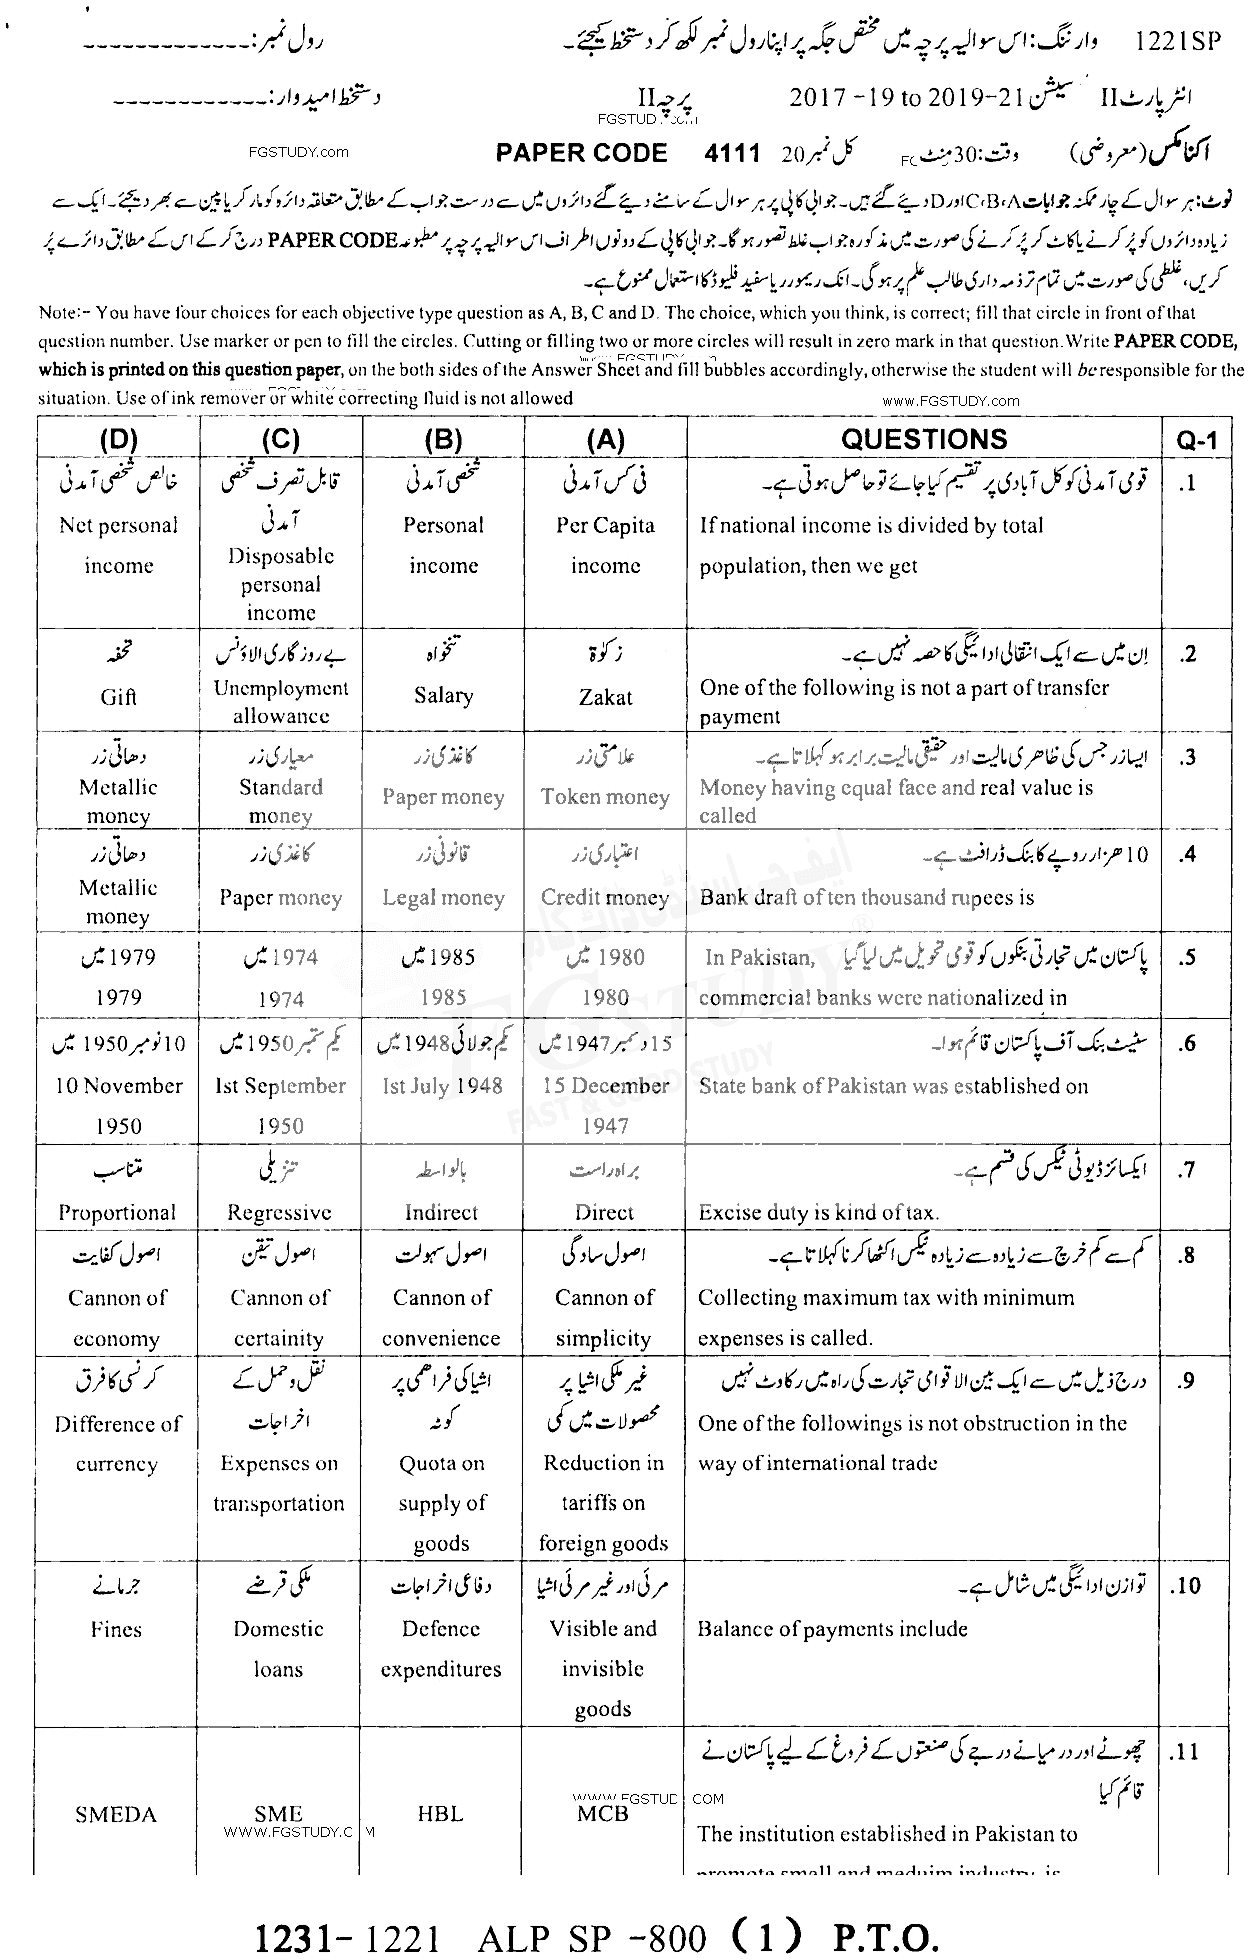 1221SP وارننگ: اس سوالیہ پرچہ میں مختص جگہ پر اپنا رول نمبر لکھ کر دستخط کیجئے۔ رول نمبر: -------------
انٹر پارٹ II سیشن 2017 -19 to 2019-21 پرچہ II دستخط امیدوار: ------------
FGSTUDY.com
اکنامکس (معروضی) وقت: 30 منٹ کل نمبر 20 PAPER CODE 4111 FGSTUDY.com
نوٹ: ہر سوال کے چار ممکنہ جوابات A، B، C اور D دیئے گئے ہیں۔ جوابی کاپی پر ہر سوال کے سامنے دیئے گئے دائروں میں سے درست جواب کے مطابق متعلقہ دائرہ کو مارکر یا پین سے بھر دیجئے۔ ایک سے
زیادہ دائروں کو پُر کرنے یا کاٹ کر پُر کرنے کی صورت میں مذکورہ جواب غلط تصور ہوگا۔ جوابی کاپی کے دونوں اطراف اس سوالیہ پرچہ پر مطبوعہ PAPER CODE درج کر کے اس کے مطابق دائرے پُر
کریں، غلطی کی صورت میں تمام تر ذمہ داری طالب علم پر ہوگی۔ انک ریمورر یا سفید فلیوڈ کا استعمال ممنوع ہے۔
Note:- You have four choices for each objective type question as A, B, C and D. The choice, which you think, is correct; fill that circle in front of that
question number. Use marker or pen to fill the circles. Cutting or filling two or more circles will result in zero mark in that question. Write PAPER CODE,
which is printed on this question paper, on the both sides of the Answer Sheet and fill bubbles accordingly, otherwise the student will be responsible for the
situation. Use of ink remover or white correcting fluid is not allowed
www.FGSTUDY.com
(D) (C) (B) (A) QUESTIONS Q-1
.1 قومی آمدنی کو کل آبادی پر تقسیم کیا جائے تو حاصل ہوتی ہے۔
If national income is divided by total
population, then we get
فی کس آمدنی
Per Capita
income
شخصی آمدنی
Personal
income
قابل تصرف شخصی
آمدنی
Disposable
personal
income
خالص شخصی آمدنی
Net personal
income
.2 اِن میں سے ایک انتقالی ادائیگی کا حصہ نہیں ہے۔
One of the following is not a part of transfer
payment
زکوٰۃ
Zakat
تنخواہ
Salary
بے روزگاری الاؤنس
Unemployment
allowance
تحفہ
Gift
.3 ایسا زر جس کی ظاہری مالیت اور حقیقی مالیت برابر ہو کہلاتا ہے۔
Money having equal face and real value is
called
علامتی زر
Token money
کاغذی زر
Paper money
معیاری زر
Standard
money
دھاتی زر
Metallic
money
.4 10 ہزار روپے کا بنک ڈرافٹ ہے۔
Bank draft of ten thousand rupees is
اعتباری زر
Credit money
قانونی زر
Legal money
کاغذی زر
Paper money
دھاتی زر
Metallic
money
.5 پاکستان میں تجارتی بنکوں کو قومی تحویل میں لیا گیا In Pakistan,
commercial banks were nationalized in
1980 میں
1980
1985 میں
1985
1974 میں
1974
1979 میں
1979
.6 سٹیٹ بنک آف پاکستان قائم ہوا۔
State bank of Pakistan was established on
15 دسمبر 1947 میں
15 December
1947
یکم جولائی 1948 میں
1st July 1948
یکم ستمبر 1950 میں
1st September
1950
10 نومبر 1950 میں
10 November
1950
.7 ایکسائز ڈیوٹی ٹیکس کی قسم ہے۔
Excise duty is kind of tax.
براہ راست
Direct
بالواسطہ
Indirect
تنزیلی
Regressive
متناسب
Proportional
.8 کم سے کم خرچ سے زیادہ سے زیادہ ٹیکس اکٹھا کرنا کہلاتا ہے۔
Collecting maximum tax with minimum
expenses is called.
اصول سادگی
Cannon of
simplicity
اصول سہولت
Cannon of
convenience
اصول تیقن
Cannon of
certainity
اصول کفایت
Cannon of
economy
.9 درج ذیل میں سے ایک بین الاقوامی تجارت کی راہ میں رکاوٹ نہیں
One of the followings is not obstruction in the
way of international trade
غیر ملکی اشیا پر
محصولات میں کمی
Reduction in
tariffs on
foreign goods
اشیا کی فراہمی پر
کوٹہ
Quota on
supply of
goods
نقل و حمل کے
اخراجات
Expenses on
transportation
کرنسی کا فرق
Difference of
currency
.10 توازن ادائیگی میں شامل ہے۔
Balance of payments include
مرئی اور غیر مرئی اشیا
Visible and
invisible
goods
دفاعی اخراجات
Defence
expenditures
ملکی قرضے
Domestic
loans
جرمانے
Fines
.11 چھوٹے اور درمیانے درجے کی صنعتوں کے فروغ کے لیے پاکستان نے
قائم کیا
The institution established in Pakistan to
promote small and meduim industry is
MCB
HBL
SME
SMEDA
WWW.FGSTUDY.COM
WWW.FGSTUDY.COM
ایف جی اسٹڈی ڈاٹ کام
FGSTUDY ®
FAST & GOOD STUDY
1231- 1221 ALP SP -800 (1) P.T.O.